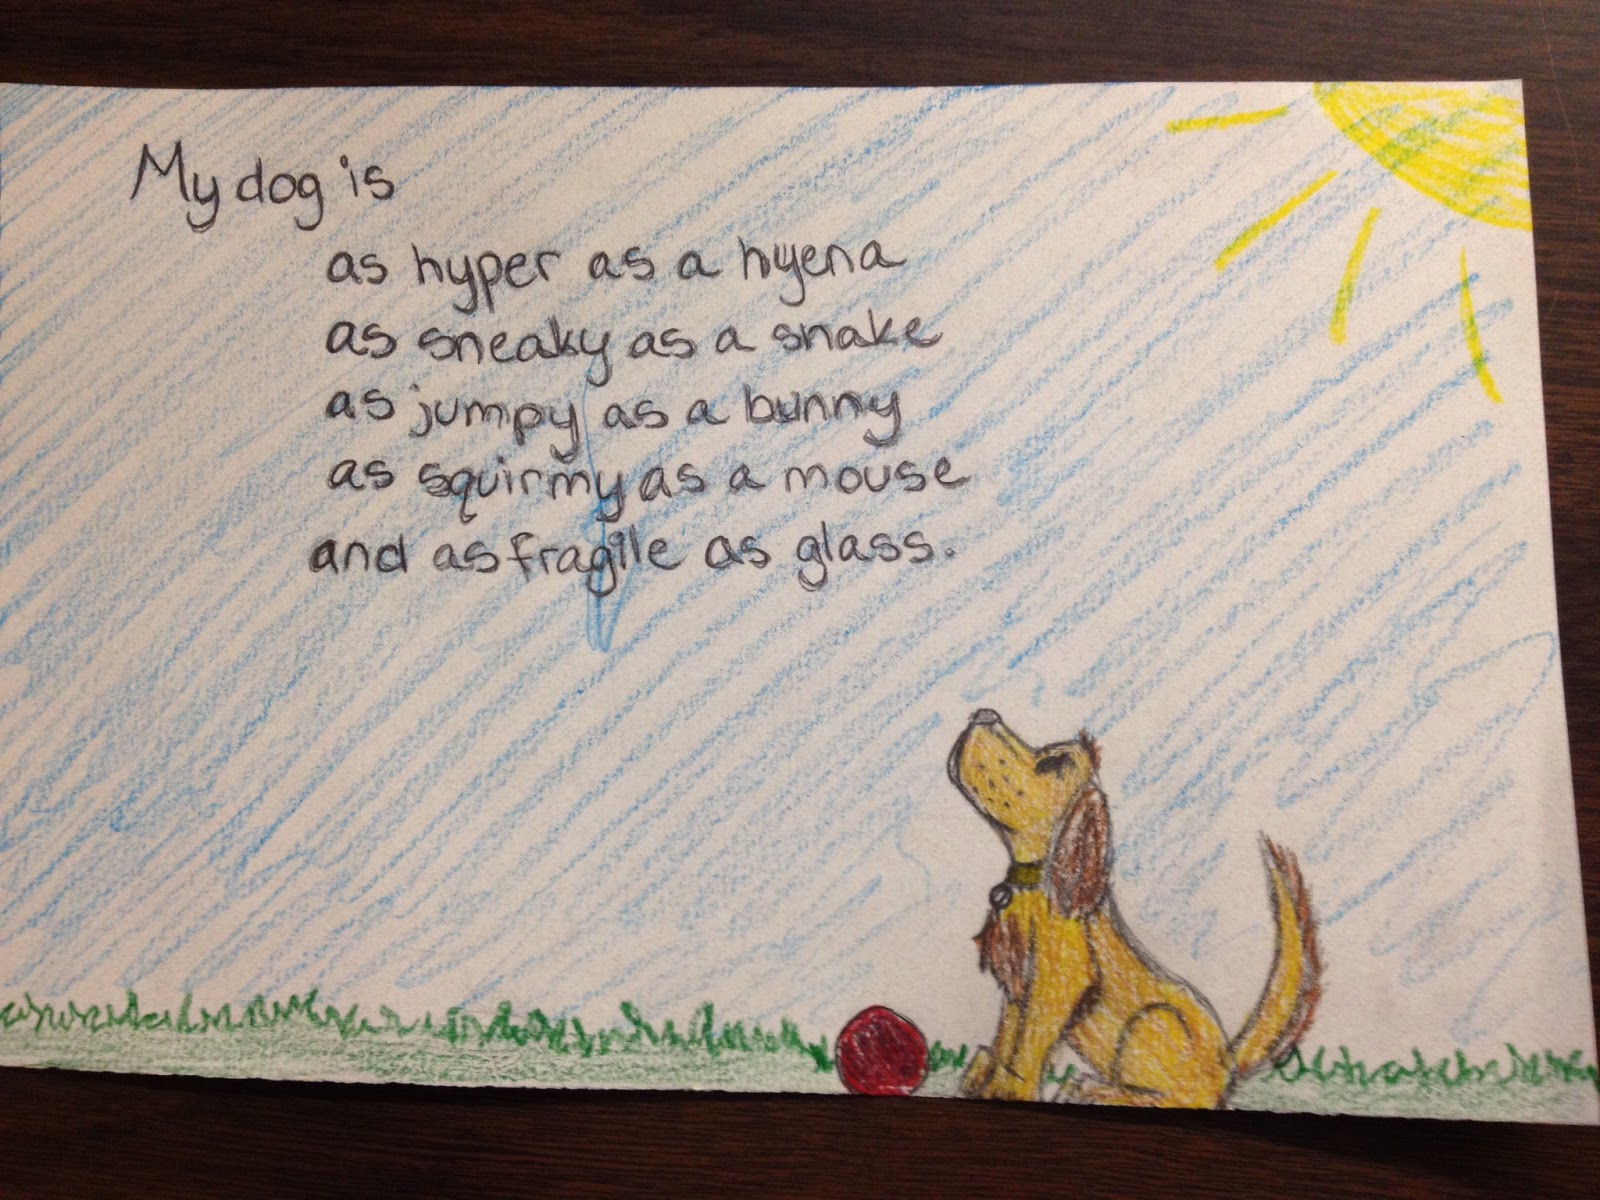 My dog is
as hyper as a hyena
as sneaky as a snake
as jumpy as a bunny
as squirmy as a mouse
and as fragile as glass.